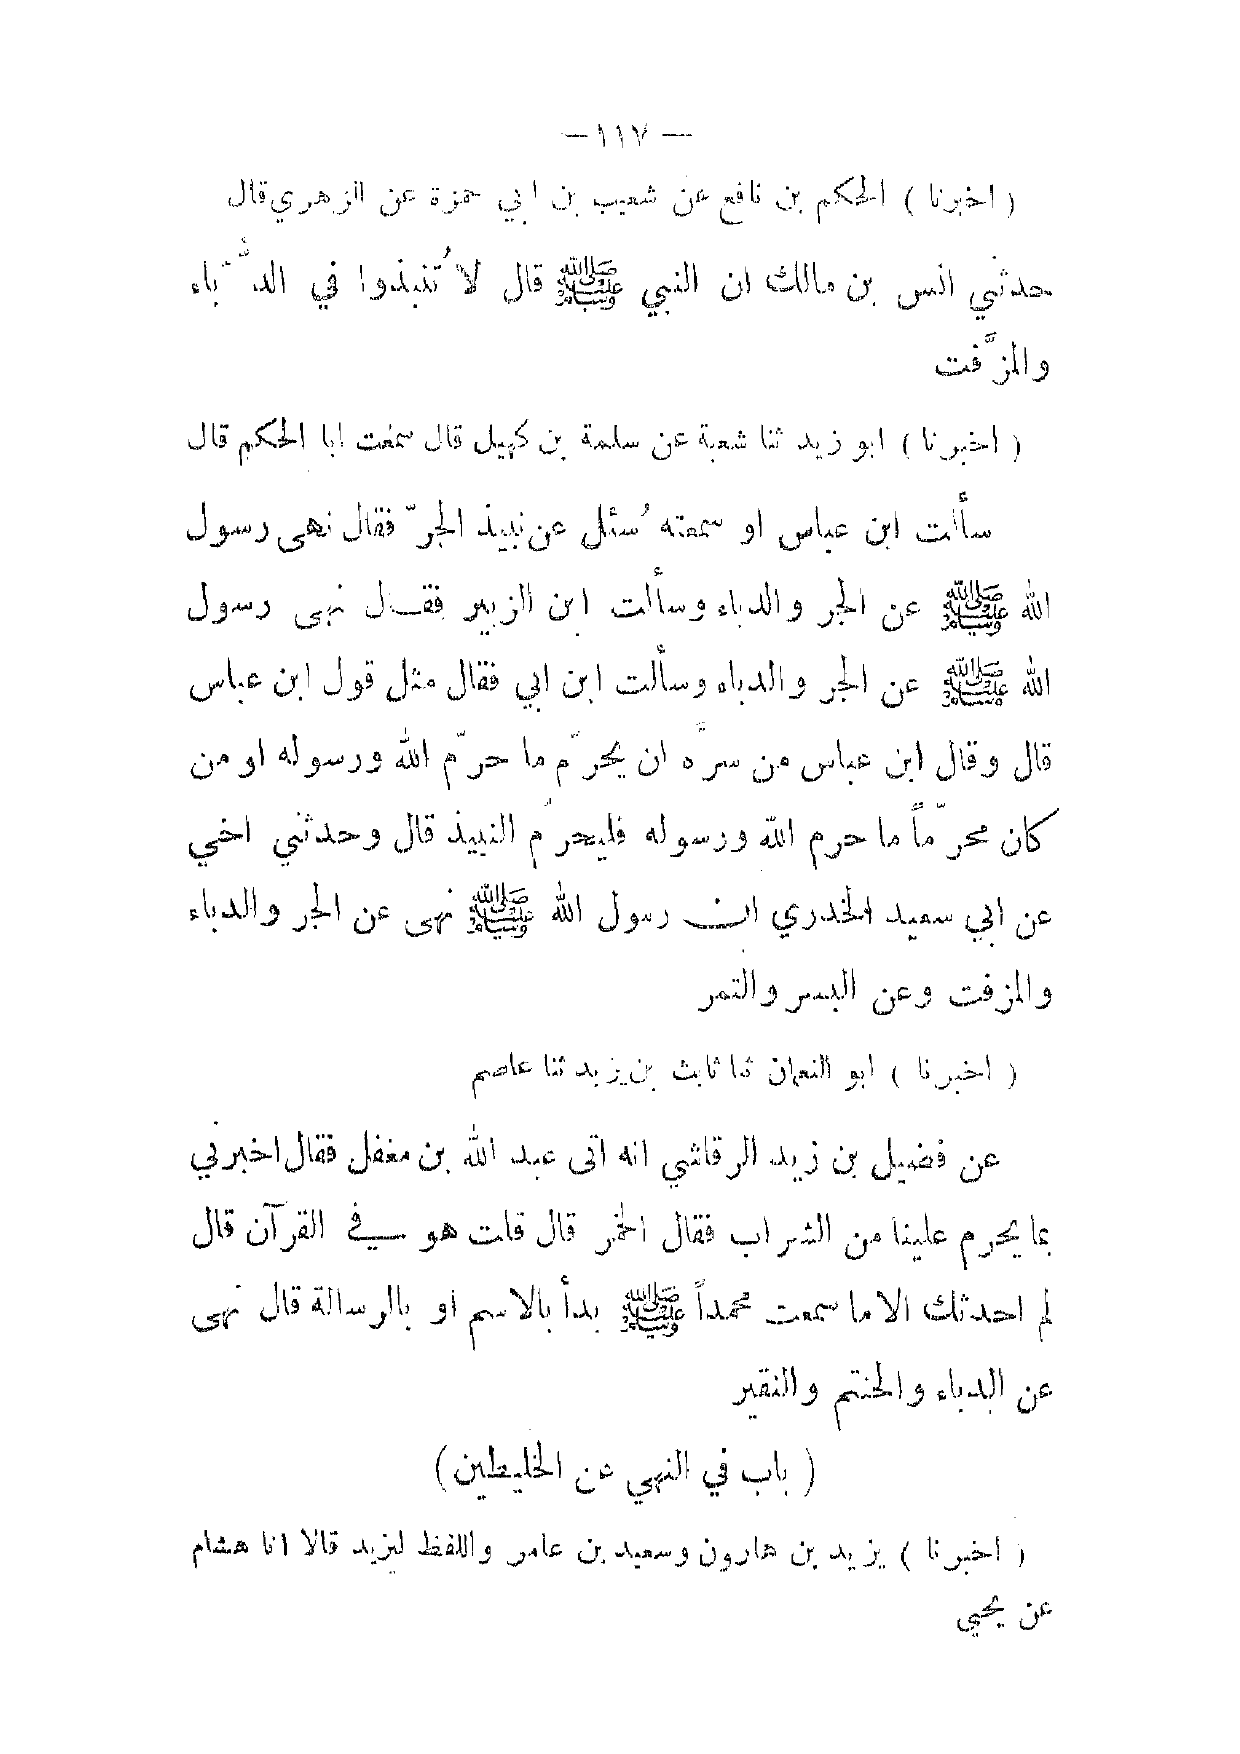 — ١١٧ —
( اخبرنا ) الحكم بن نافع عن شعيب بن ابي حمزة عن الزهري قال
حدثني انس بن مالك ان النبي ﷺ قال لا تُنبذوا في الدُّبَّاء
والمزَّفت
( اخبرنا ) ابو زيد ثنا شعبة عن سلمة بن كهيل قال سمعت ابا الحكم قال
سألت ابن عباس او سمعته سُئل عن نبيذ الجرّ فقال نهى رسول
الله ﷺ عن الجر والدباء وسألت ابن الزبير فقال نهى رسول
الله ﷺ عن الجر والدباء وسألت ابن ابي فقال مثل قول ابن عباس
قال وقال ابن عباس من سرَّه ان يحرّم ما حرّم الله ورسوله او من
كان محرّماً ما حرم الله ورسوله فليحرّم النبيذ قال وحدثني اخي
عن ابي سعيد الخدري ان رسول الله ﷺ نهى عن الجر والدباء
والمزفت وعن البسر والتمر
( اخبرنا ) ابو النعمان ثنا ثابث بن يزيد ثنا عاصم
عن فضيل بن زيد الرقاشي انه اتى عبد الله بن مغفل فقال اخبرني
بما يحرم علينا من الشراب فقال الخمر قال قلت هو في القرآن قال
لم احدثك الا ما سمعت محمداً ﷺ بدأ بالاسم او بالرسالة قال نهى
عن الدباء والحنتم والنقير
( باب في النهي عن الخليطين )
( اخبرنا ) يزيد بن هارون وسعيد بن عامر واللفظ ليزيد قالا انا هشام
عن يحيى